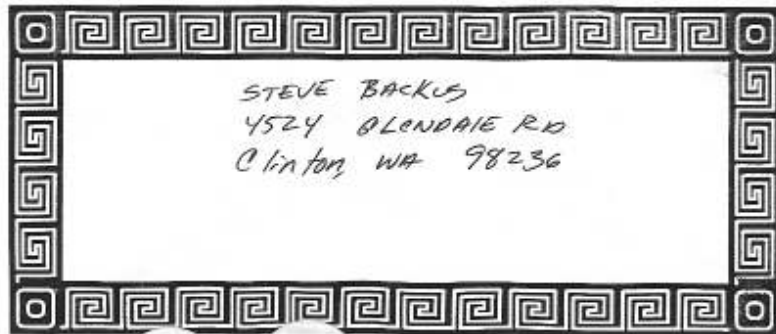 STEVE BACKUS
4524 GLENDALE RD
Clinton, WA 98236